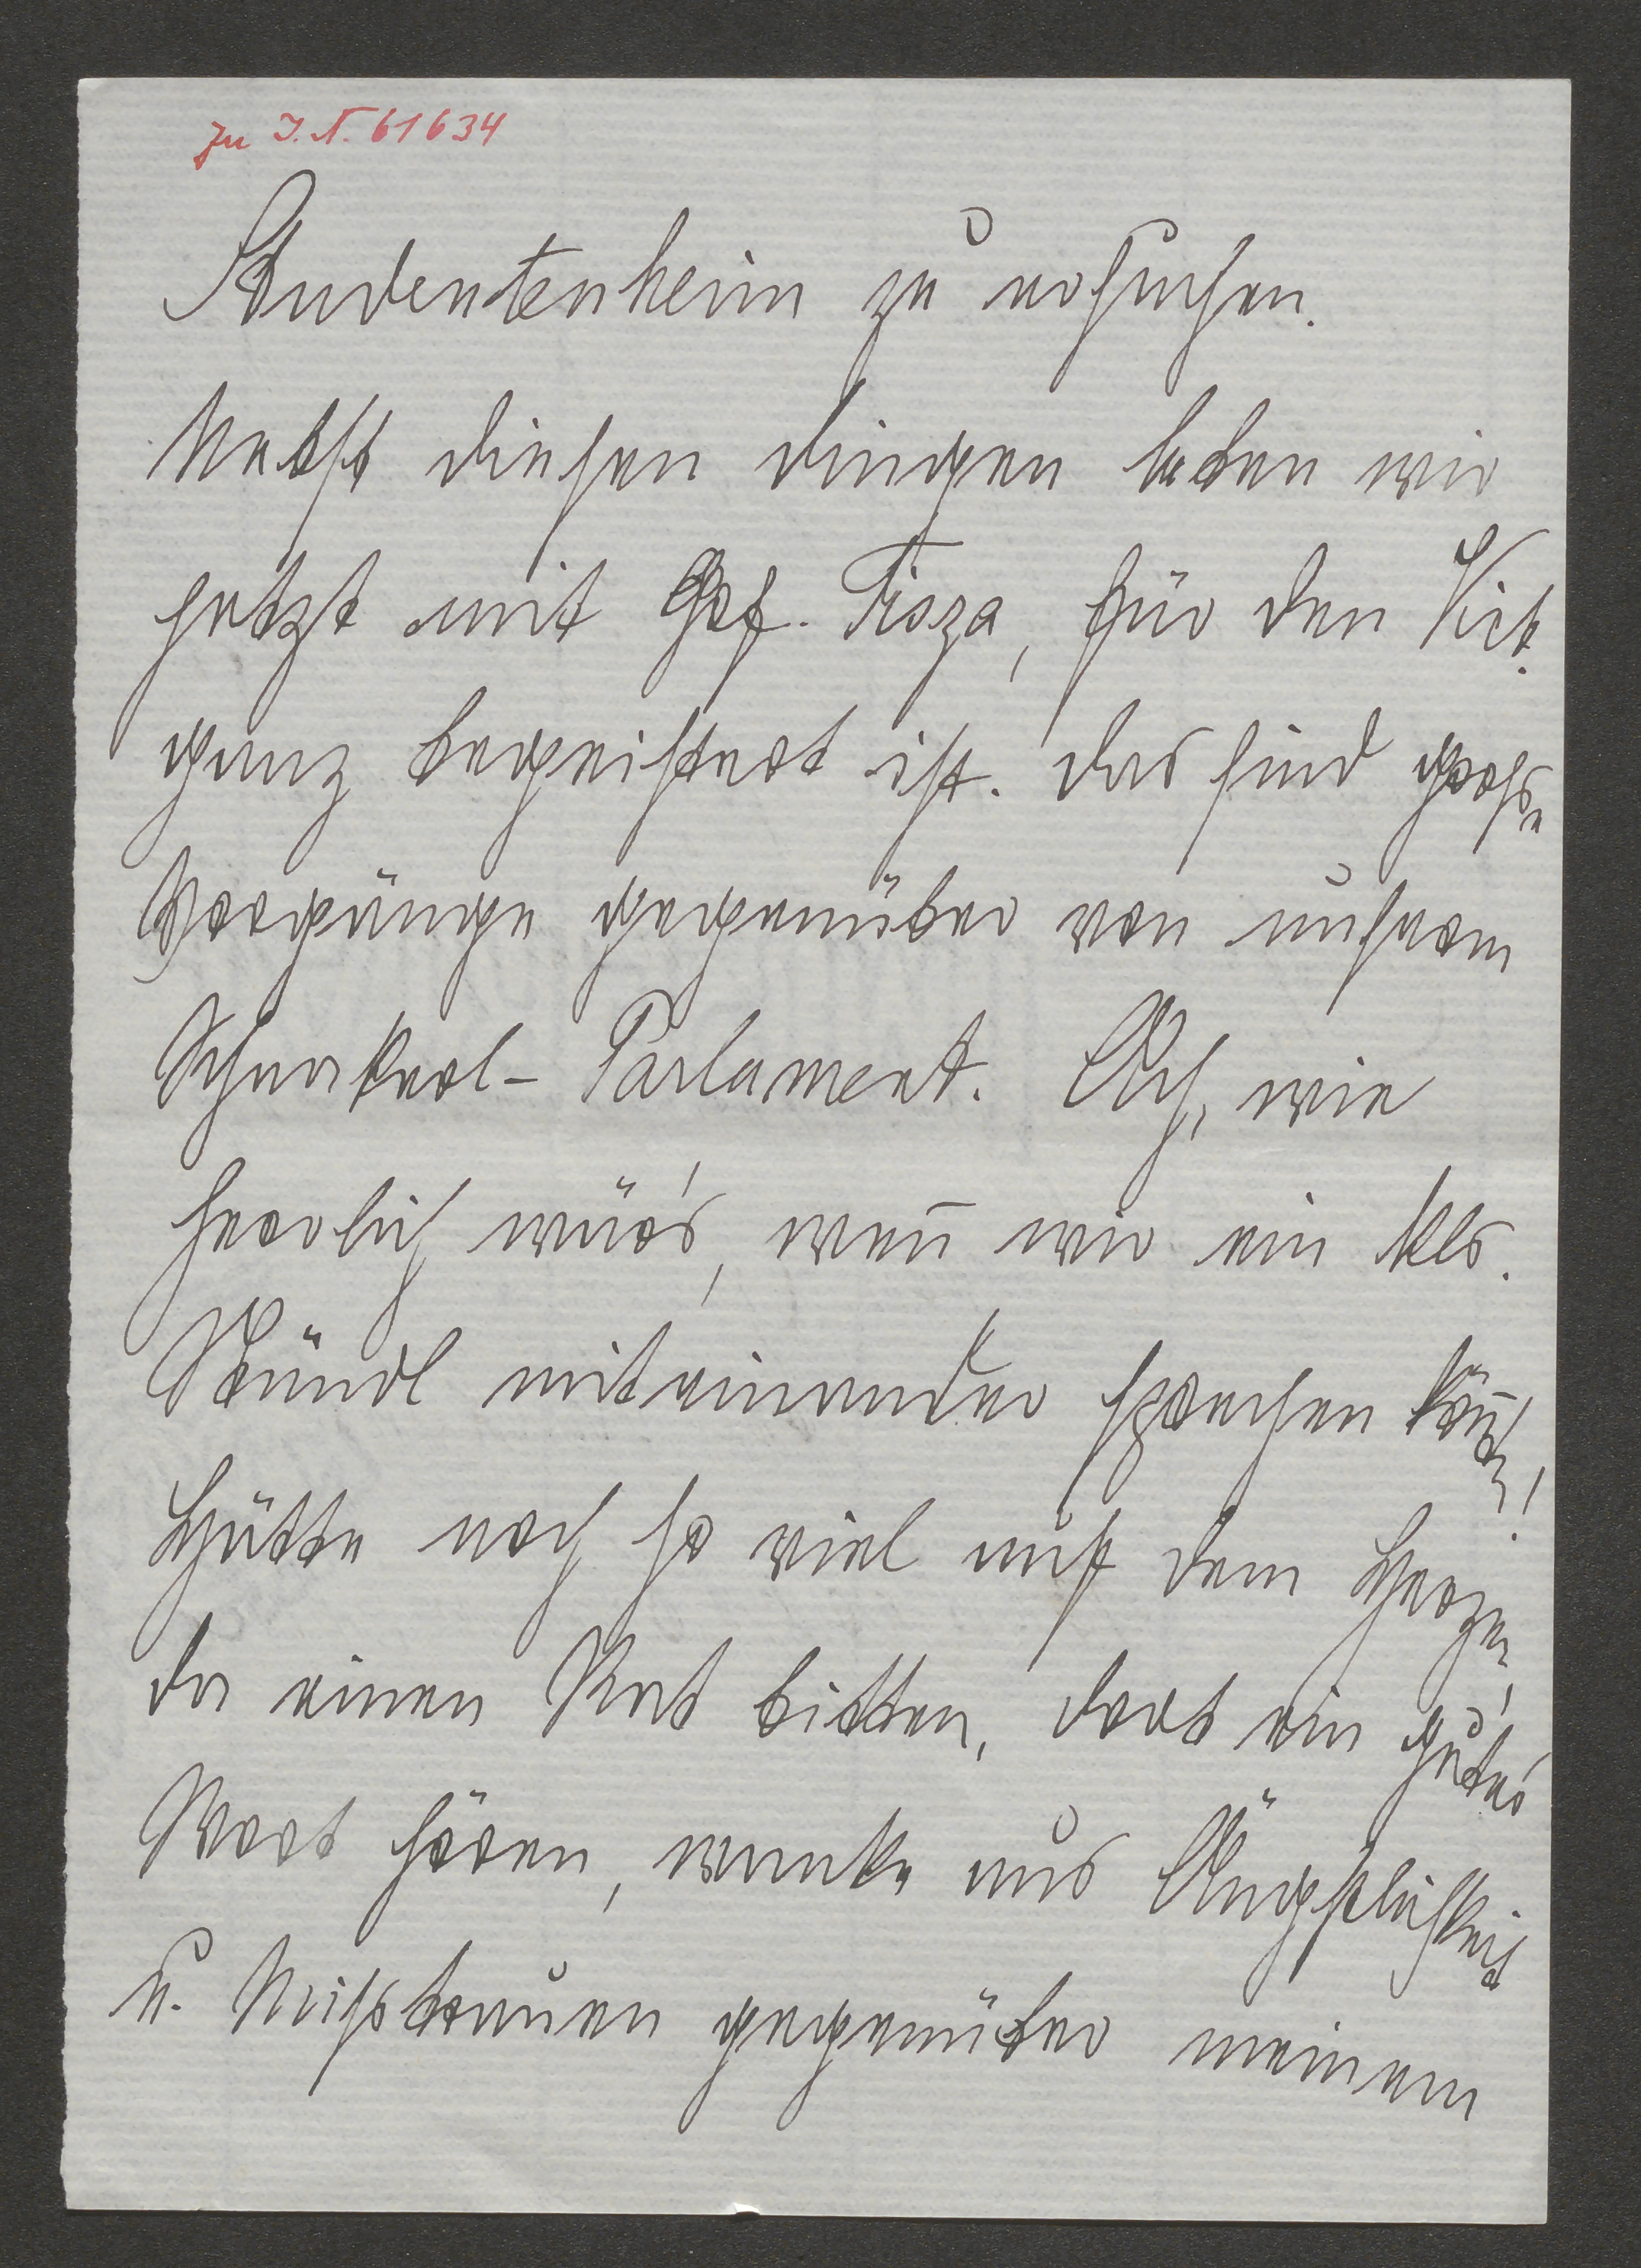 zu I.N. 61634
Studentenheim zu ersuchen.
Nebst diesen Dingen leben wir
jetzt mit Grf. Tisza, für den Kit.
ganz begeistert ist. Das sind große
Vorgänge gegenüber von unserem
Schnorkerl-Parlament. Ach, wie
herrlich wär's, wenn̄ wir ein kls.
Stündl miteinander sprechen könn̄ten!
Hätte noch so viel auf dem Herzen,
da einen Rat bitten, dort ein gutes
Wort hören, wanke aus Ängstlichkeit
u. Misstrauen gegenüber meinem